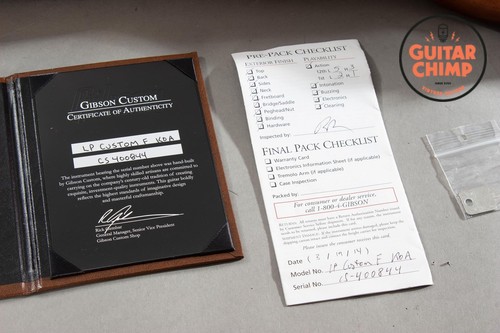 GIBSON CUSTOM
CERTIFICATE OF AUTHENTICITY
LP CUSTOM F KOA
CS400844
The instrument bearing the serial number above was hand-built
by Gibson Custom, where highly skilled artisans are committed to
carrying on the company's century-old tradition of creating
exquisite, investment-quality instruments. This guitar boldly
reflects the highest standards of imaginative design
and masterful craftsmanship.
General Manager, Senior Vice President
Gibson Custom Shop
PRE-PACK CHECKLIST
EXTERIOR FINISH
Top
Back
Sides
Neck
Fretboard
Bridge/Saddle
Peghead/Nut
Binding
Hardware
PLAYABILITY
Action
12th
1st
Intonation
Buzzing
Electronics
Cleaning
Inspected by
FINAL PACK CHECKLIST
Warranty Card
Electronics Information Sheet (if applicable)
Tremolo Arm (if applicable)
Case Inspection
Packed by:
For customer or dealer service,
call 1-800-4-GIBSON
Please have the customer retain this card.
Date
Model No. LP Custom F KOA
Serial No. CS-400844
GUITAR
CHIMP